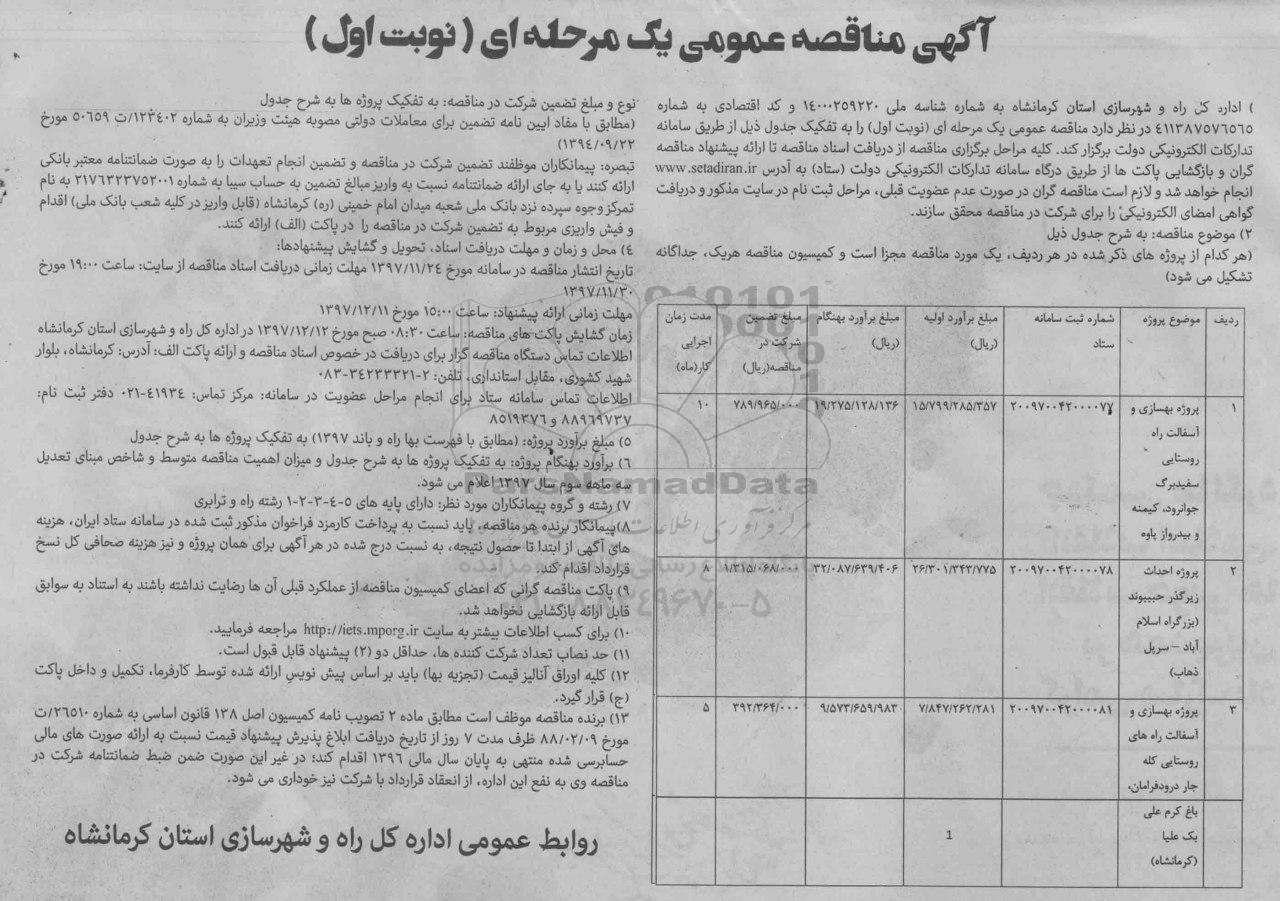 آگهی مناقصه عمومی یک مرحله ای ( نوبت اول )
) اداره کل راه و شهرسازی استان کرمانشاه به شماره شناسه ملی ۱٤۰۰۰۲۵۹۲۲۰ و کد اقتصادی به شماره
٤۱۱۳۸۷۵۷٦۵٦۵ در نظر دارد مناقصه عمومی یک مرحله ای (نوبت اول) را به تفکیک جدول ذیل از طریق سامانه
تدارکات الکترونیکی دولت برگزار کند. کلیه مراحل برگزاری مناقصه از دریافت اسناد مناقصه تا ارائه پیشنهاد مناقصه
گران و بازگشایی پاکت ها از طریق درگاه سامانه تدارکات الکترونیکی دولت (ستاد) به آدرس www.setadiran.ir
انجام خواهد شد و لازم است مناقصه گران در صورت عدم عضویت قبلی، مراحل ثبت نام در سایت مذکور و دریافت
گواهی امضای الکترونیکی را برای شرکت در مناقصه محقق سازند.
۲) موضوع مناقصه: به شرح جدول ذیل
(هر کدام از پروژه های ذکر شده در هر ردیف، یک مورد مناقصه مجزا است و کمیسیون مناقصه هریک، جداگانه
تشکیل می شود)
ردیف موضوع پروژه شماره ثبت سامانه ستاد مبلغ برآورد اولیه (ریال) مبلغ برآورد بهنگام (ریال) مبلغ تضمین شرکت در مناقصه(ریال) مدت زمان اجرایی کار(ماه)
۱ پروژه بهسازی و ۲۰۰۹۷۰۰۰۴۲۰۰۰۰۷۷ ۱۵/۷۹۹/۲۸۵/۳۵۷ ۱۹/۲۷۵/۱۲۸/۱۳۶ ۷۸۹/۹۶۵/۰۰۰ ۱۰
آسفالت راه
روستایی
سفیدبرگ
جوانرود، کیمنه
و بیدرواز پاوه
۲ پروژه احداث ۲۰۰۹۷۰۰۰۴۲۰۰۰۰۷۸ ۲۶/۳۰۱/۳۴۳/۷۷۵ ۳۲/۰۸۷/۶۳۹/۴۰۶ ۱/۳۱۵/۰۶۸/۰۰۰ ۸
زیرگذر حبیبوند
(بزرگراه اسلام
آباد – سرپل
ذهاب)
۳ پروژه بهسازی و ۲۰۰۹۷۰۰۰۴۲۰۰۰۰۸۱ ۷/۸۴۷/۲۶۲/۲۸۱ ۹/۵۷۳/۶۵۹/۹۸۳ ۳۹۲/۳۶۴/۰۰۰ ۵
آسفالت راه های
روستایی کله
جار درودفرامان،
باغ کرم علی
بک علیا
(کرمانشاه)
1
نوع و مبلغ تضمین شرکت در مناقصه: به تفکیک پروژه ها به شرح جدول
(مطابق با مفاد ایین نامه تضمین برای معاملات دولتی مصوبه هیئت وزیران به شماره ۱۲۳٤۰۲/ت ۵۰٦۵۹ مورخ
۱۳۹٤/۰۹/۲۲)
تبصره: پیمانکاران موظفند تضمین شرکت در مناقصه و تضمین انجام تعهدات را به صورت ضمانتنامه معتبر بانکی
ارائه کنند یا به جای ارائه ضمانتنامه نسبت به واریز مبالغ تضمین به حساب سیبا به شماره ۲۱۷٦۳۲۳۷۵۲۰۰۱ به نام
تمرکز وجوه سپرده نزد بانک ملی شعبه میدان امام خمینی (ره) کرمانشاه (قابل واریز در کلیه شعب بانک ملی) اقدام
و فیش واریزی مربوط به تضمین شرکت در مناقصه را در پاکت (الف) ارائه کنند.
٤) محل و زمان و مهلت دریافت اسناد، تحویل و گشایش پیشنهادها:
تاریخ انتشار مناقصه در سامانه مورخ ۱۳۹۷/۱۱/۲٤ مهلت زمانی دریافت اسناد مناقصه از سایت: ساعت ۱۹:۰۰ مورخ
۱۳۹۷/۱۱/۳۰
مهلت زمانی ارائه پیشنهاد: ساعت ۱۵:۰۰ مورخ ۱۳۹۷/۱۲/۱۱
زمان گشایش پاکت های مناقصه: ساعت ۰۸:۳۰ صبح مورخ ۱۳۹۷/۱۲/۱۲ در اداره کل راه و شهرسازی استان کرمانشاه
اطلاعات تماس دستگاه مناقصه گزار برای دریافت در خصوص اسناد مناقصه و ارائه پاکت الف: آدرس: کرمانشاه، بلوار
شهید کشوری، مقابل استانداری، تلفن: ۲-۳٤۲۳۳۳۲۱-۰۸۳
اطلاعات تماس سامانه ستاد برای انجام مراحل عضویت در سامانه: مرکز تماس: ٤۱۹۳٤-۰۲۱ دفتر ثبت نام:
۸۸۹٦۹۷۳۷ و ۸۵۱۹۳۷٦
۵) مبلغ برآورد پروژه: (مطابق با فهرست بها راه و باند ۱۳۹۷) به تفکیک پروژه ها به شرح جدول
٦) برآورد بهنگام پروژه: به تفکیک پروژه ها به شرح جدول و میزان اهمیت مناقصه متوسط و شاخص مبنای تعدیل
سه ماهه سوم سال ۱۳۹۷ اعلام می شود.
۷) رشته و گروه پیمانکاران مورد نظر: دارای پایه های ۵-٤-۳-۲-۱ رشته راه و ترابری
۸)پیمانکار برنده هر مناقصه، باید نسبت به پرداخت کارمزد فراخوان مذکور ثبت شده در سامانه ستاد ایران، هزینه
های آگهی از ابتدا تا حصول نتیجه، به نسبت درج شده در هر آگهی برای همان پروژه و نیز هزینه صحافی کل نسخ
قرارداد اقدام کند.
۹) پاکت مناقصه گرانی که اعضای کمیسیون مناقصه از عملکرد قبلی آن ها رضایت نداشته باشند به استناد به سوابق
قابل ارائه بازگشایی نخواهد شد.
۱۰) برای کسب اطلاعات بیشتر به سایت http://iets.mporg.ir مراجعه فرمایید.
۱۱) حد نصاب تعداد شرکت کننده ها، حداقل دو (۲) پیشنهاد قابل قبول است.
۱۲) کلیه اوراق آنالیز قیمت (تجزیه بها) باید بر اساس پیش نویس ارائه شده توسط کارفرما، تکمیل و داخل پاکت
(ج) قرار گیرد.
۱۳) برنده مناقصه موظف است مطابق ماده ۲ تصویب نامه کمیسیون اصل ۱۳۸ قانون اساسی به شماره ۲٦۵۱۰/ت
مورخ ۸۸/۰۲/۰۹ ظرف مدت ۷ روز از تاریخ دریافت ابلاغ پذیرش پیشنهاد قیمت نسبت به ارائه صورت های مالی
حسابرسی شده منتهی به پایان سال مالی ۱۳۹٦ اقدام کند؛ در غیر این صورت ضمن ضبط ضمانتنامه شرکت در
مناقصه وی به نفع این اداره، از انعقاد قرارداد با شرکت نیز خوداری می شود.
روابط عمومی اداره کل راه و شهرسازی استان کرمانشاه
ParsNamadData